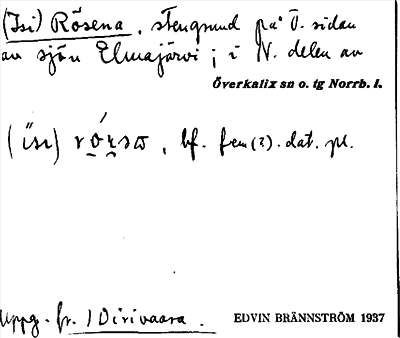 (Isi) Rösena, stengrund på Ö. sidan
av sjön Elmajärvi; i N. delen av
Överkalix sn o. tg Norrb. l.
bf. fem (?). dat. pl.
Uppg. fr.
EDVIN BRÄNNSTRÖM 1937